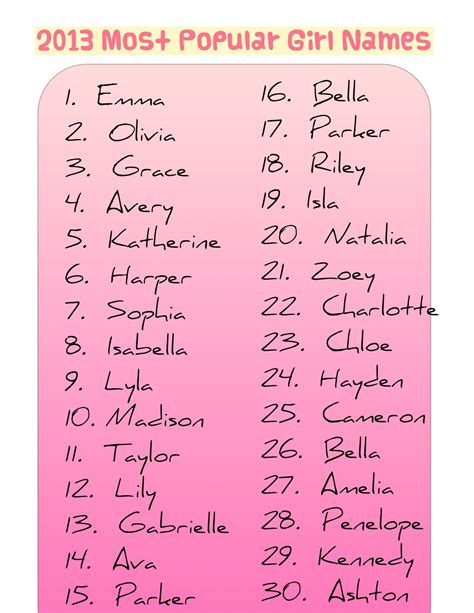 2013 Most Popular Girl Names
1. Emma
2. Olivia
3. Grace
4. Avery
5. Katherine
6. Harper
7. Sophia
8. Isabella
9. Lyla
10. Madison
11. Taylor
12. Lily
13. Gabrielle
14. Ava
15. Parker
16. Bella
17. Parker
18. Riley
19. Isla
20. Natalia
21. Zoey
22. Charlotte
23. Chloe
24. Hayden
25. Cameron
26. Bella
27. Amelia
28. Penelope
29. Kennedy
30. Ashton